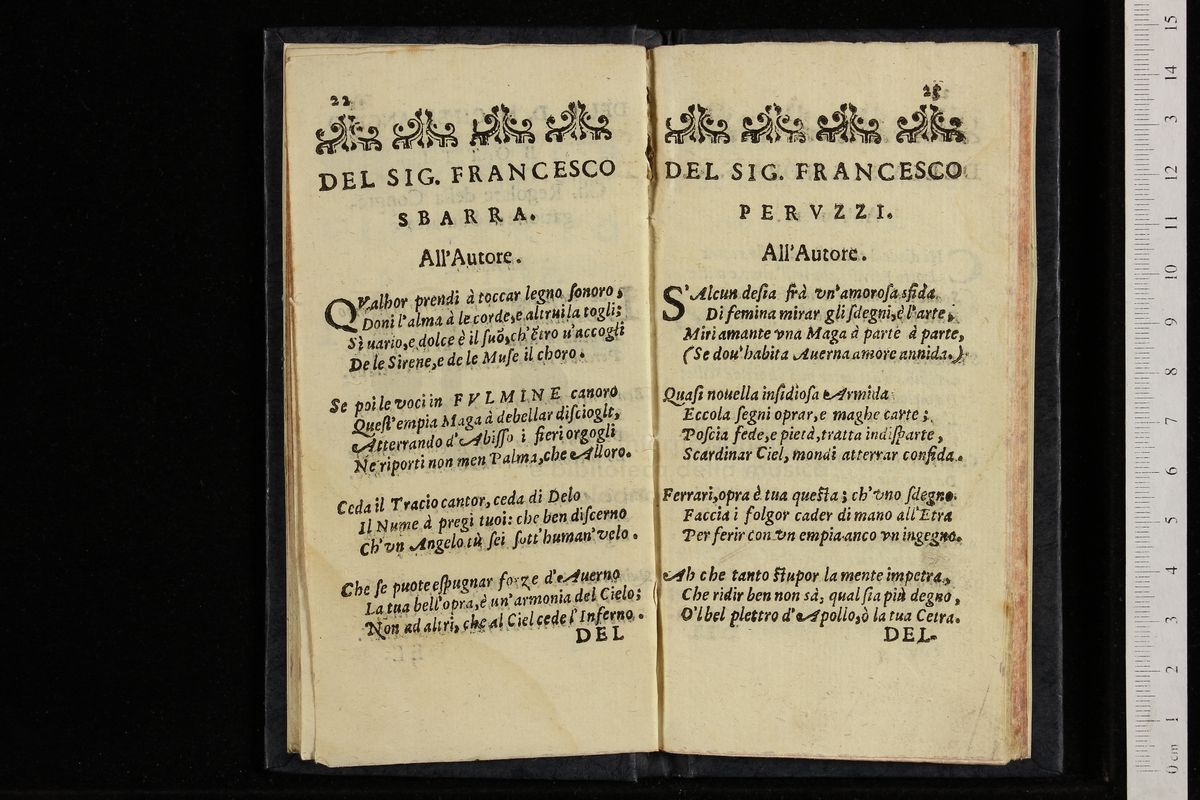 22
DEL SIG. FRANCESCO
SBARRA.
All'Autore.
QValhor prendi à toccar legno sonoro,
Doni l'alma à le corde, e altrui la togli;
Sì uario, e dolce è il suõ, ch'ẽtro u'accogli
De le Sirene, e de le Muse il choro.
Se poi le voci in FVLMINE canoro
Quest'empia Maga à debellar disciogli,
Atterrando d'Abisso i fieri orgogli
Ne riporti non men Palma, che Alloro.
Ceda il Tracio cantor, ceda di Delo
Il Nume à pregi tuoi: che ben discerno
Ch'vn Angelo tù sei sott'human'velo.
Che se puote espugnar forze d'Auerno
La tua bell'opra, è un'armonia del Cielo;
Non ad altri, che al Ciel cede l'Inferno.
DEL
25
DEL SIG. FRANCESCO
PERVZZI.
All'Autore.
S'Alcun desia frà vn'amorosa sfida
Di femina mirar gli sdegni, è l'arte,
Miri amante vna Maga à parte à parte,
(Se dou'habita Auerna amore annida.)
Quasi nouella insidiosa Armida
Eccola segni oprar, e maghe carte;
Poscia fede, e pietà, tratta indisparte,
Scardinar Ciel, mondi atterrar confida.
Ferrari, opra è tua questa; ch'vno sdegno
Faccia i folgor cader di mano all'Etra
Per ferir con vn empia anco vn ingegno.
Ah che tanto stupor la mente impetra,
Che ridir ben non sà, qual sia più degno,
O'l bel plettro d'Apollo, ò la tua Cetra.
DEL
0 cm 1 2 3 4 5 6 7 8 9 10 11 12 13 14 15